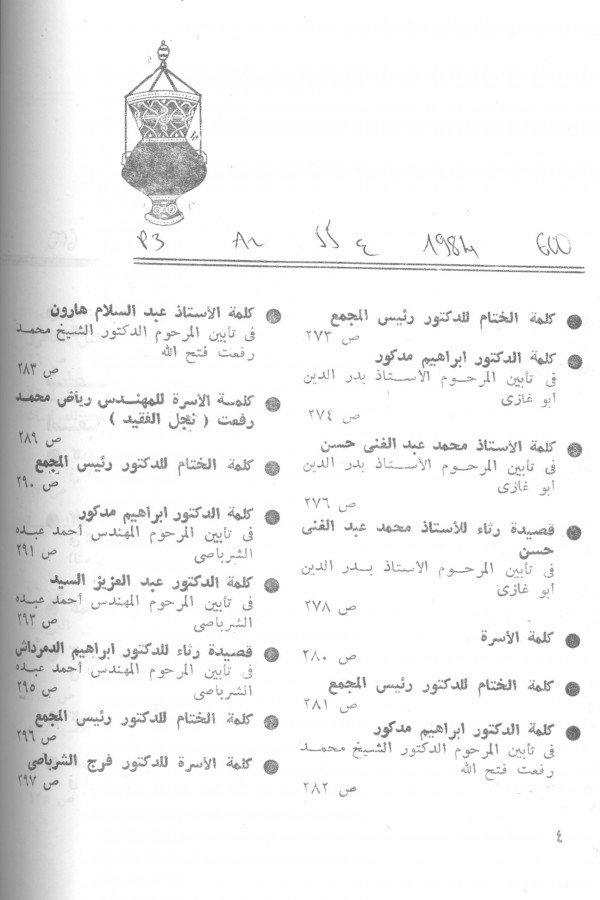 P3 1984
كلمة الختام للدكتور رئيس المجمع
ص ٢٧٣
كلمة الدكتور ابراهيم مدكور
فى تأبين المرحوم الأستاذ بدر الدين
ابو غازى
ص ٢٧٤
كلمة الأستاذ محمد عبد الغنى حسن
فى تأبين المرحوم الأستاذ بدر الدين
ابو غازى
ص ٢٧٦
قصيدة رثاء للأستاذ محمد عبد الغنى
حسن
فى تأبين المرحوم الأستاذ بدر الدين
ابو غازى
ص ٢٧٨
كلمة الأسرة
ص ٢٨٠
كلمة الختام للدكتور رئيس المجمع
ص ٢٨١
كلمة الدكتور ابراهيم مدكور
فى تأبين المرحوم الدكتور الشيخ محمد
رفعت فتح الله
ص ٢٨٢
كلمة الأستاذ عبد السلام هارون
فى تأبين المرحوم الدكتور الشيخ محمد
رفعت فتح الله
ص ٢٨٣
كلمة الأسرة للمهندس رياض محمد
رفعت ( نجل الفقيد )
ص ٢٨٩
كلمة الختام للدكتور رئيس المجمع
ص ٢٩٠
كلمة الدكتور ابراهيم مدكور
فى تأبين المرحوم المهندس أحمد عبده
الشرباصى ص ٢٩١
كلمة الدكتور عبد العزيز السيد
فى تأبين المرحوم المهندس أحمد عبده
الشرباصى ص ٢٩٣
قصيدة رثاء للدكتور ابراهيم الدمرداش
فى تأبين المرحوم المهندس أحمد عبده
الشرباصى ص ٢٩٥
كلمة الختام للدكتور رئيس المجمع
ص ٢٩٦
كلمة الأسرة للدكتور فرج الشرباصى
ص ٢٩٧
٤